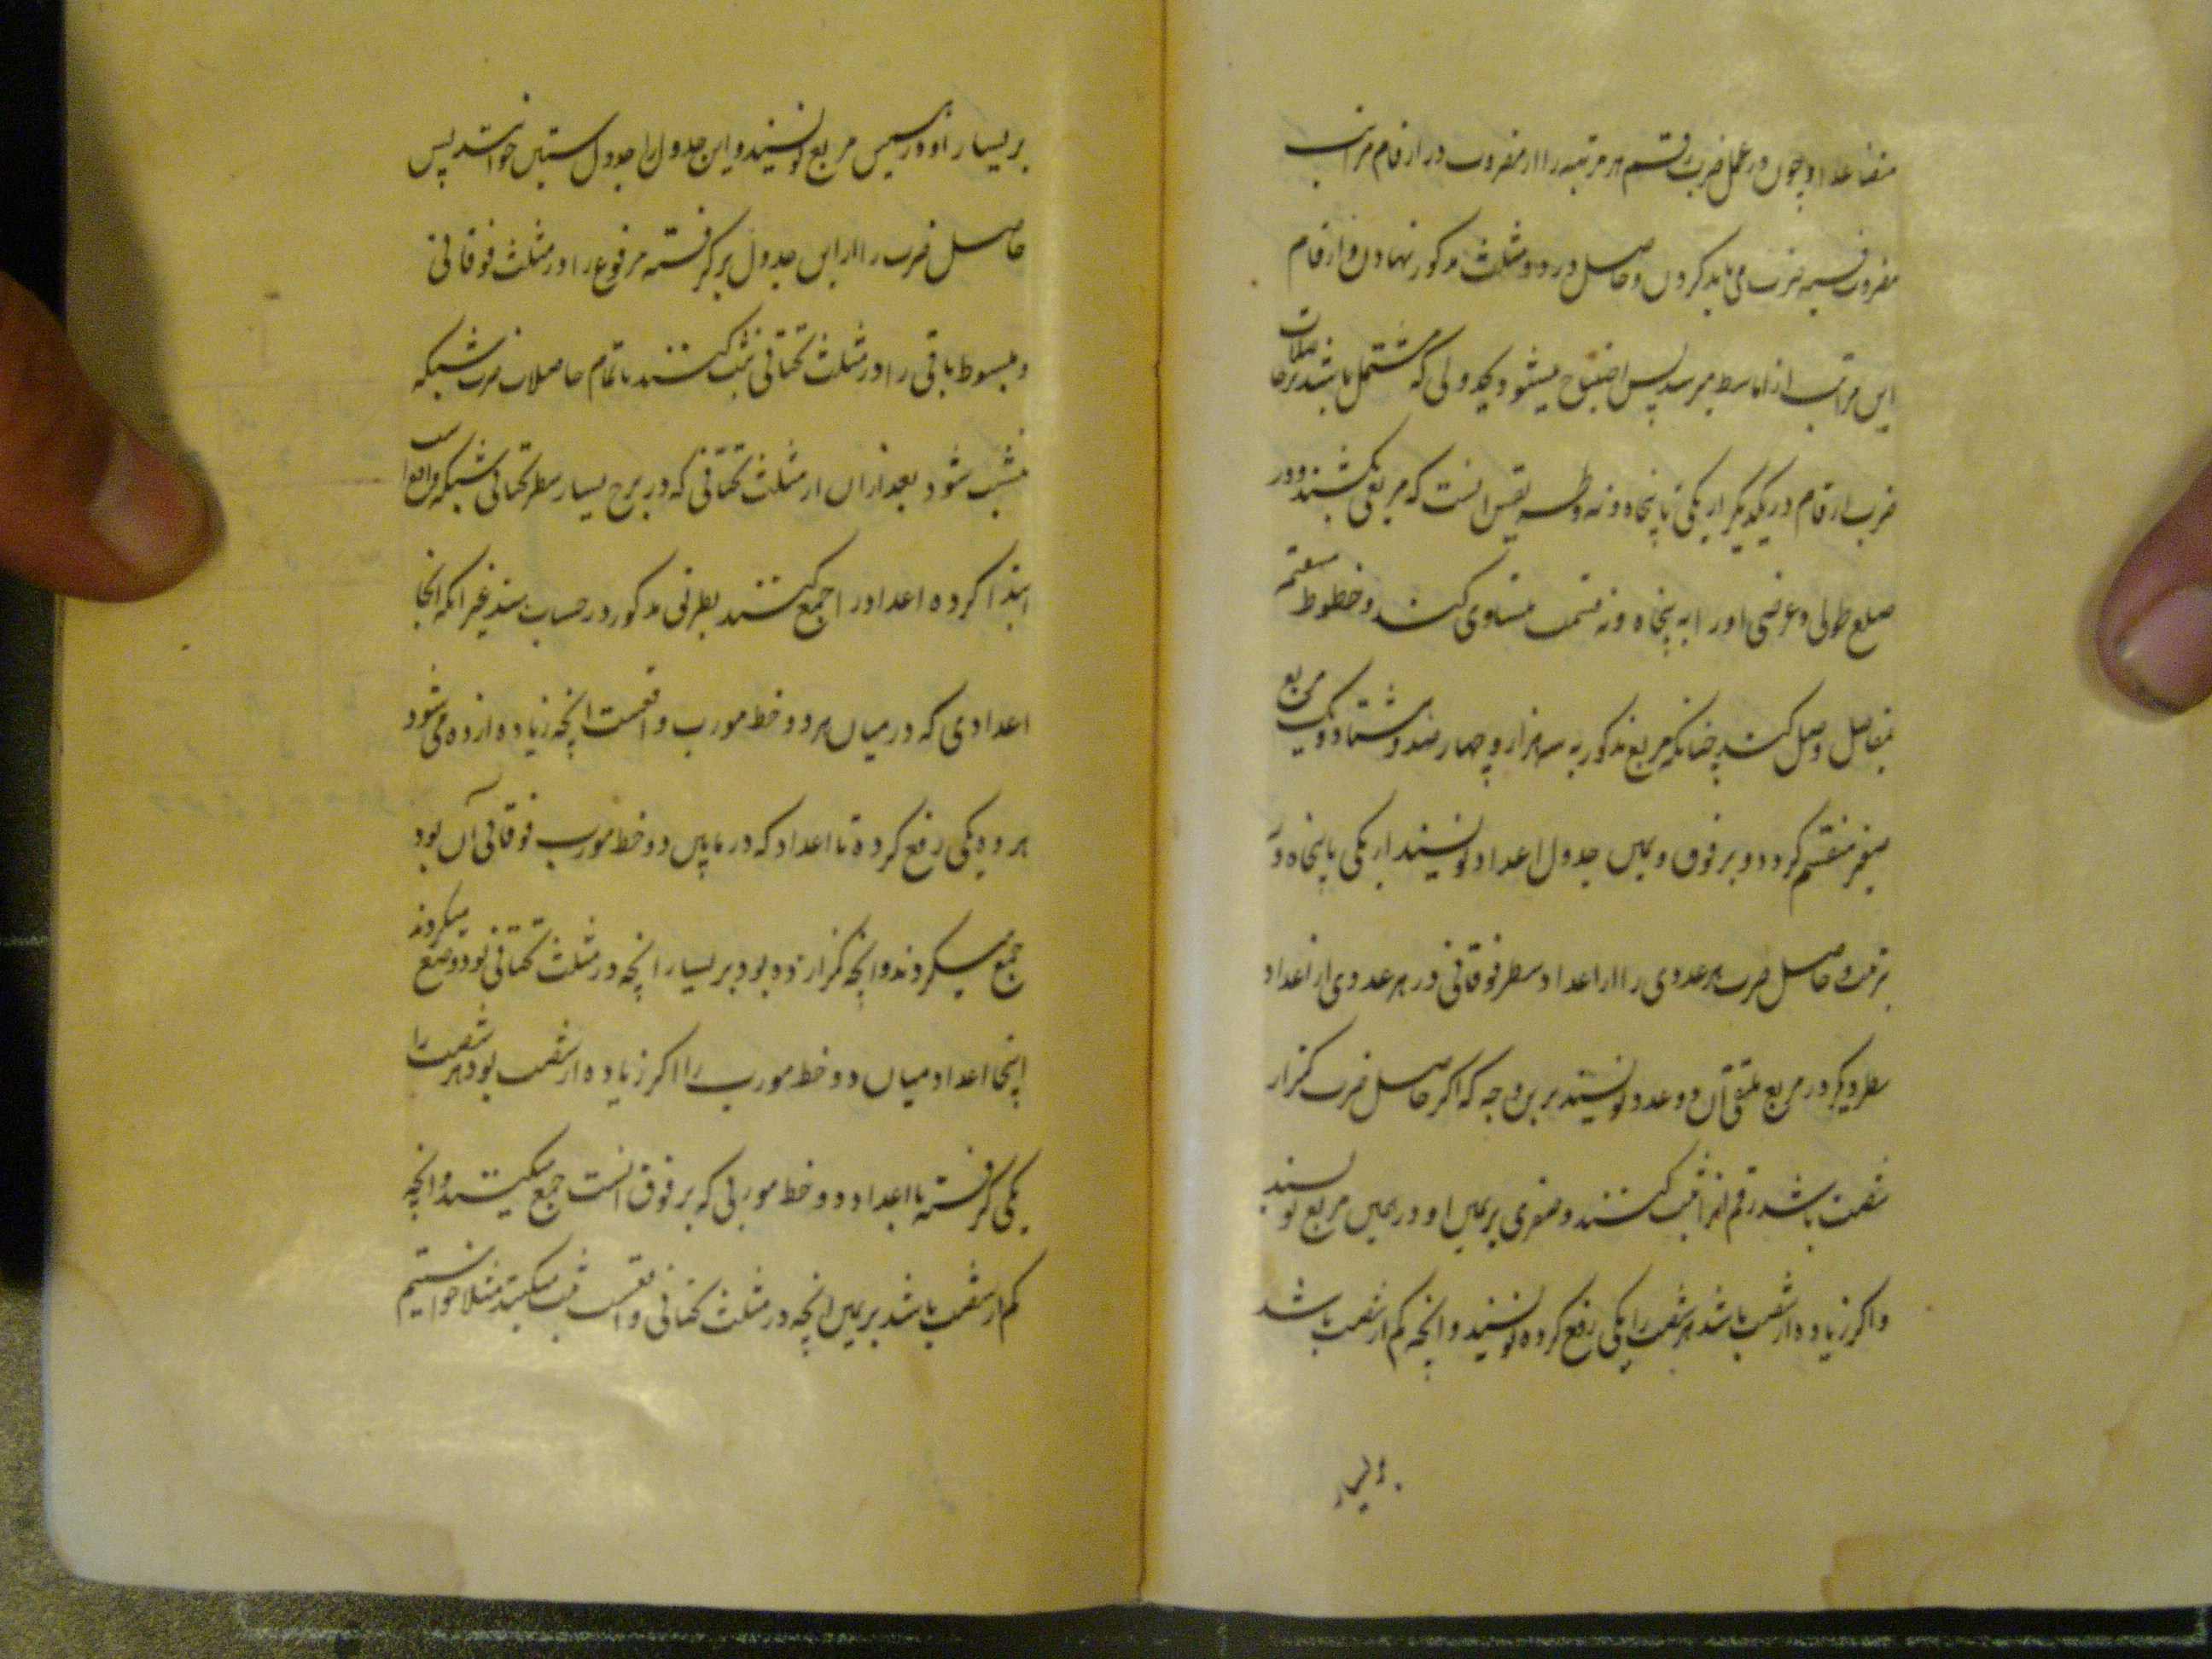 متضاعد او چون در عمل ضرب رقم هر مرتبه را از مضروب در ارقام مراتب
مضروب فیه ضرب می باید کردن و حاصل در دو مثلث مذکور نهادن و ارقام
این مراتب از اماسط میرسد پس احتیاج میشود بجدولی که مشتمل باشد بر حاصلات
ضرب ارقام در یکدیگر از یکی تا پنجاه و نه و طریقش انست که مربعی بکشند و دو
ضلع طولی و عرضی او را به پنجاه و نه قسمت متساوی کنند و خطوط مستقیم
بمفاصل وصل کنند چنانکه مربع مذکور به سه هزار و چهار صد و هشتاد و یک مربع
صغیر منقسم گردد و بر فوق و یمین جدول اعداد نویسند از یکی تا پنجاه و نه
بترتیب و حاصل ضرب هر عددی را از اعداد سطر فوقانی در هر عددی از اعداد
سطر دیگر در مربع ملتقی آن دو عدد نویسند برین وجه که اگر حاصل ضرب کمتر از
شصت باشد رقم انرا ثبت کنند و صفری بر یمین او در یمین مربع نویسند
و اکر زیاده از شصت باشد هر شصت را یکی رفع کرده نویسند و انچه کم از شصت باشد
بر یسار
بر یسار او در همین مربع نویسند و این جدول را جدول ستین خوانند پس
حاصل ضرب را از این جدول بر گرفته مرفوع را در مثلث فوقانی
و مبسوط باقی را در مثلث تحتانی ثبت کنند تا تمام حاصلات ضرب شبکه
مثبت شود بعد از ان از مثلث تحتانی که در برج یسار سطر تحتانی شبکه واقع است
ابتدا کرده اعداد را جمع کنند بطریق مذکور در حساب هند غیر انکه انجا
اعدادی که در میان هر دو خط مورب واقعست انچه زیاده از ده می شود
هر ده یکی رفع کرده با اعداد که در مابین دو خط مورب فوقانی آن بود
جمع میکردند و انچه کمتر از ده بود بر یسار انچه در مثلث تحتانی بود وضع میکردند
اینجا اعداد میان دو خط مورب را اکر زیاده از شصت بود هر شصت را
یکی گرفته با اعداد دو خط موربی که بر فوق انست جمع میکنند و انچه
کم از شصت باشد بر یمین انچه در مثلث تحتانی واقعست ثبت میکنند مثلا خواستیم